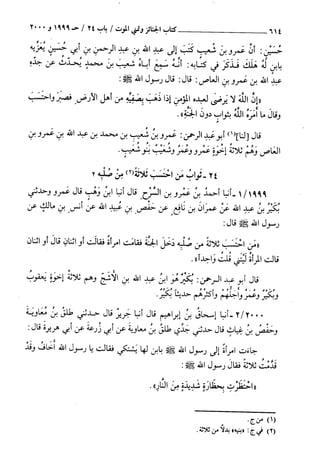 ٦١٤ كتاب الجنائز وتمني الموت / باب ٢٤ / حـ ١٩٩٩ و ٢٠٠٠
حُسَيْن: أن عَمرو بن شُعيب كَتَبَ إلى عبد الله بن عبد الرحمن بن أبي حُسَين يُعزيه
بابنٍ له هَلَكَ فذكَرَ في كتابه: أنه سَمِعَ أباه شُعيبَ بن محمدٍ يُحدثُ عن جدهِ
عبد الله بن عَمرو بن العاص: قال: قال رسول الله ﷺ:
«إنَّ اللَّهَ لا يَرضى لعبده المؤمن إذا ذَهَبَ بِصَفيه من أهل الأرض فَصبَر واحتَسَب
وقال ما أمَرَهُ اللَّهُ بِثوابٍ دونَ الجنةِ».
قال [لنا](١) أبو عبد الرحمن: عَمرو بن شُعَيب بن محمد بن عبد الله بن عَمرو بن
العاص وهُم ثلاثةُ إخوةٍ عَمرو وعُمَرُ وشُعَيْبٌ بنو شُعيبٍ.
٢٤ - ثوابُ مَنِ احْتَسَبَ ثلاثَةً(٢) مِنْ صُلْبِهِ ٢
١/١٩٩٩ - أنبا أحمدُ بن عَمْرو بن السَّرْحِ قال أنبا ابنُ وَهْبٍ قال عَمرو وحدثني
بُكَيْرُ بن عبد الله عن عِمرانَ بن نافِعٍ عن حَفْصِ بن عُبيد الله عن أنَسِ بن مالك عن
رسول الله ﷺ قال:
«مَنِ احتَسَبَ ثلاثة مِن صُلْبِه دَخَلَ الجنَّةَ فقامت امرأةٌ فقالت أو اثنانِ قالَ أو اثنانِ
قالت المرأةُ لَيْتَنِي قُلْتُ وَاحِداً».
قال أبو عبد الرحمن: بُكَيرٌ هُوَ ابنُ عبد الله بن الأشَج وهم ثلاثةُ إخوَةٍ يَعقوبُ
وبُكَيْر وعُمَر وأجَلُّهُمْ وأكثَرُهم حديثاً بُكَيْر.
٢/٢٠٠٠ - أنبا إسحاقُ بن إبراهيم قال أنبا جَرِيرٌ قال حدثني طَلْقُ بن مُعاويةَ
وحَفْصُ بن غِياثٍ قال حدثني جَدِّي طَلقُ بن معاوية عن أبي زُرعة عن أبي هريرة قال:
جاءتِ امرأةٌ إلى رسول الله ﷺ بابن لها يَشتكي فقالت يا رسول الله أخافُ وقَدْ
قدَّمتُ ثلاثةً فقالَ رسولُ الله ﷺ:
«احتَظَرْتِ بِحِظَارَةٍ شديدَةٍ مِنَ النَّارِ».
(١) من ج.
(٢) في ج: «بنيه» بدلاً من ثلاثة.